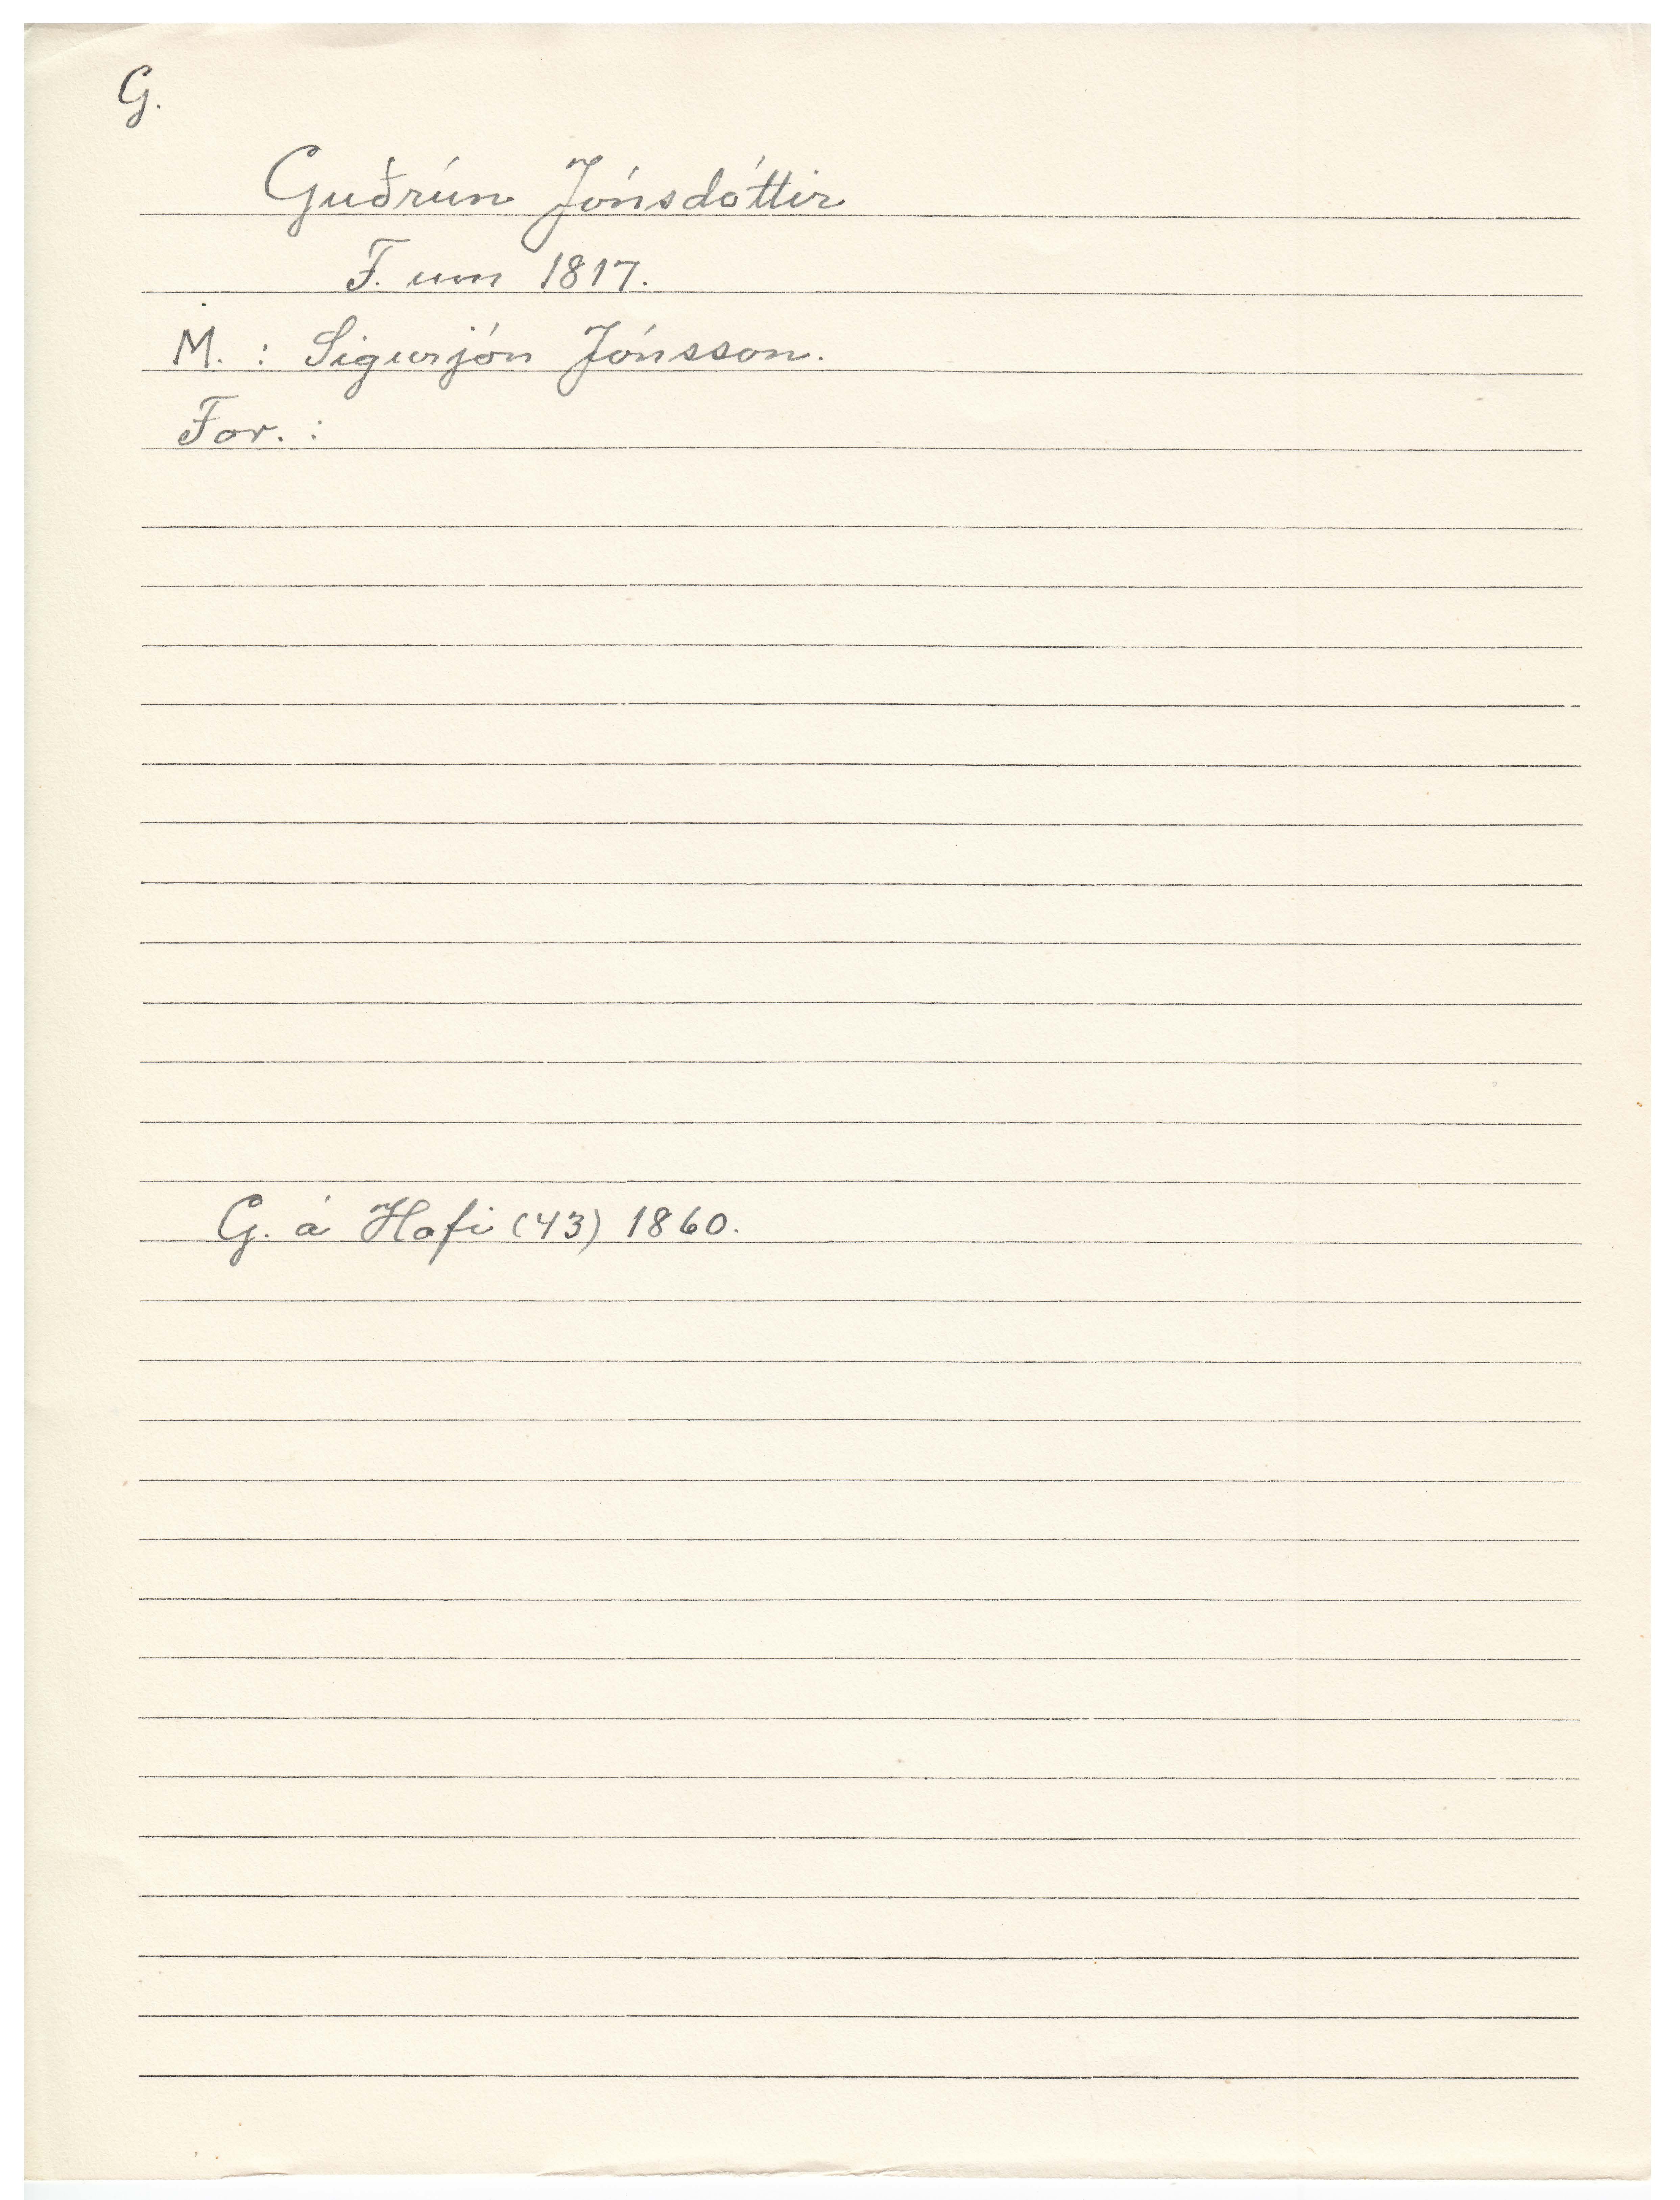 G.
Guðrún Jónsdóttir
F. um 1817.
M. : Sigurjón Jónsson.
For. :
G. á Hofi (43) 1860.